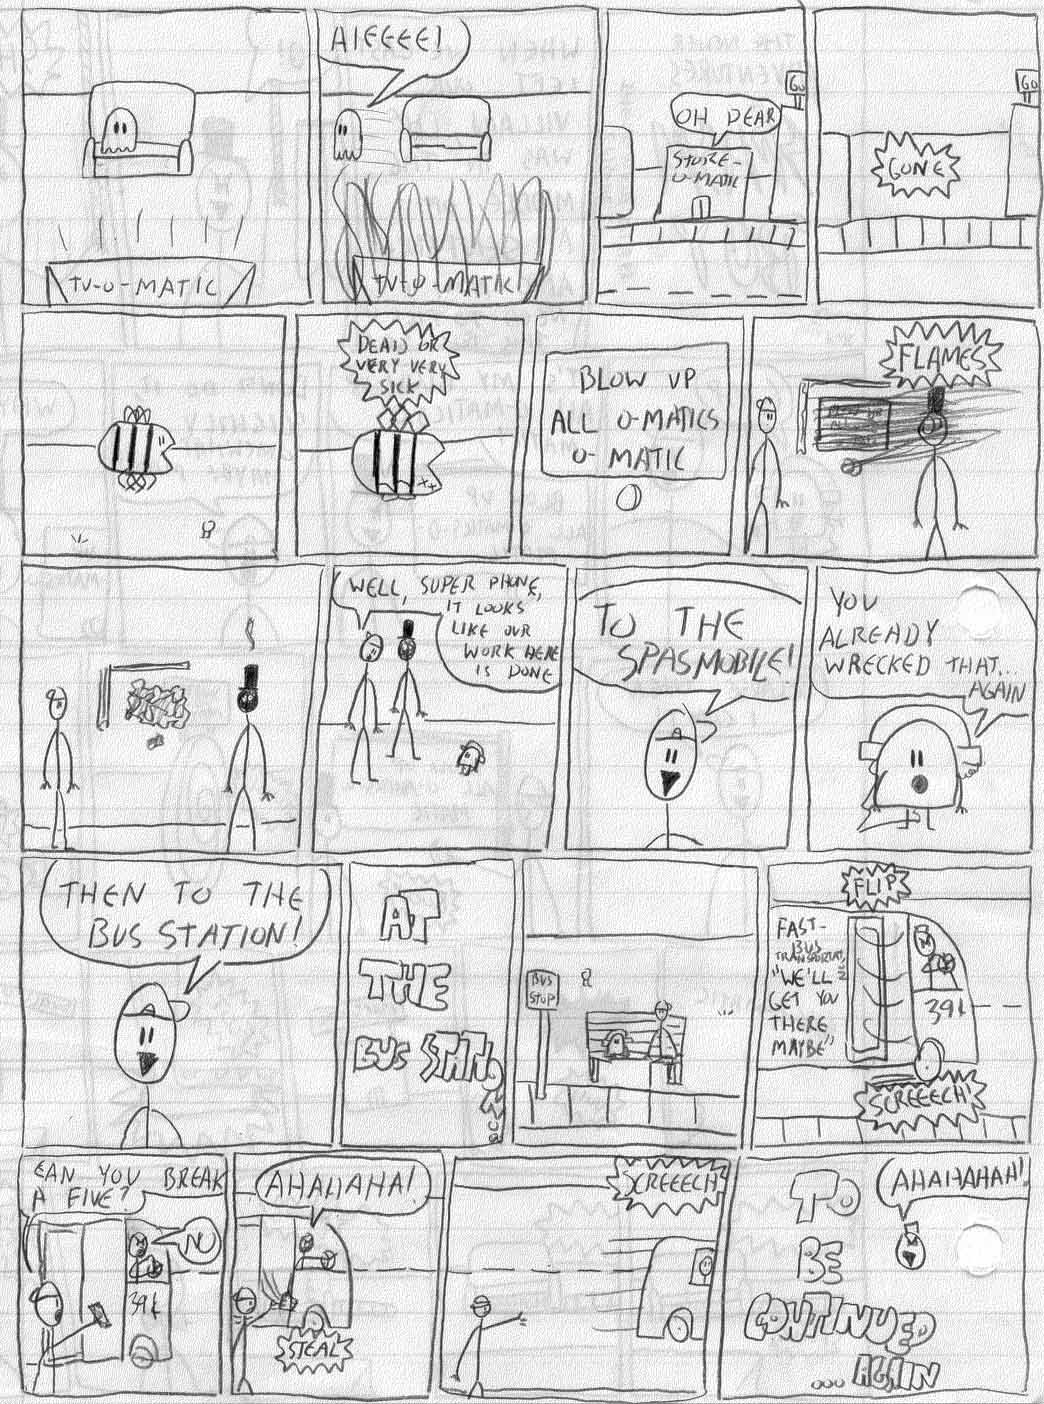 TV-O-MATIC
AIEEEE!
TV-O-MATIC
GO
OH DEAR
STORE-
O-MATIC
GO
GONE
DEAD OR
VERY VERY
SICK
BLOW UP
ALL O-MATICS
O-MATIC
FLAMES
WELL, SUPER PHONE,
IT LOOKS
LIKE OUR
WORK HERE
IS DONE
TO THE
SPASMOBILE!
YOU
ALREADY
WRECKED THAT...
AGAIN
THEN TO THE
BUS STATION!
AT
THE
BUS STATION
BUS
STOP
FLIP
FAST-
BUS
"WE'LL
GET YOU
THERE,
MAYBE"
39¢
SCREEECH
CAN YOU BREAK
A FIVE?
NO
39¢
AHAHAHA!
STEAL
SCREEECH
TO
BE
CONTINUED
... AGAIN
AHAHAHAH!